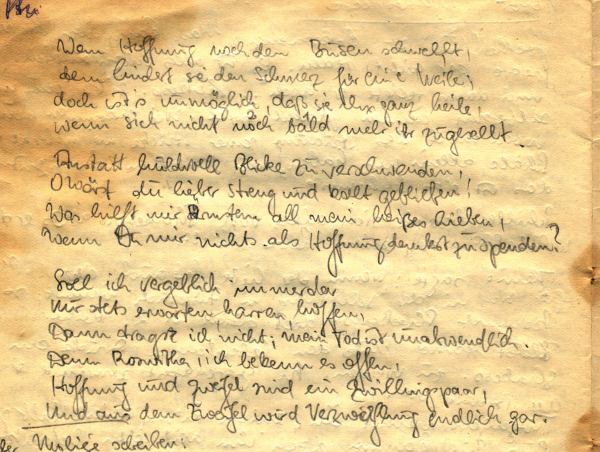 Wem Hoffnung noch den Busen schwellt,
dem lindert sie den Schmerz für eine Weile;
doch ist's unmöglich, daß sie ihn ganz heile,
wenn sich nicht noch bald mehr ihr zugesellt.
Anstatt huldvoll Blicke zu verschwenden,
O wärst du lieber streng und kalt geblieben!
Was hilft mir Ärmstem all mein heißes Lieben,
Wenn Du mir nichts als Hoffnung denkst zu spenden?
Soll ich vergeblich immerdar
Nur stets erwarten, harren, hoffen,
Dann ich nicht; mein Tod ist unabwendlich.
Denn ich bekenn es offen,
Hoffnung und Zweifel sind ein Zwillingspaar,
Und aus dem Zweifel wird Verzweiflung endlich gar.